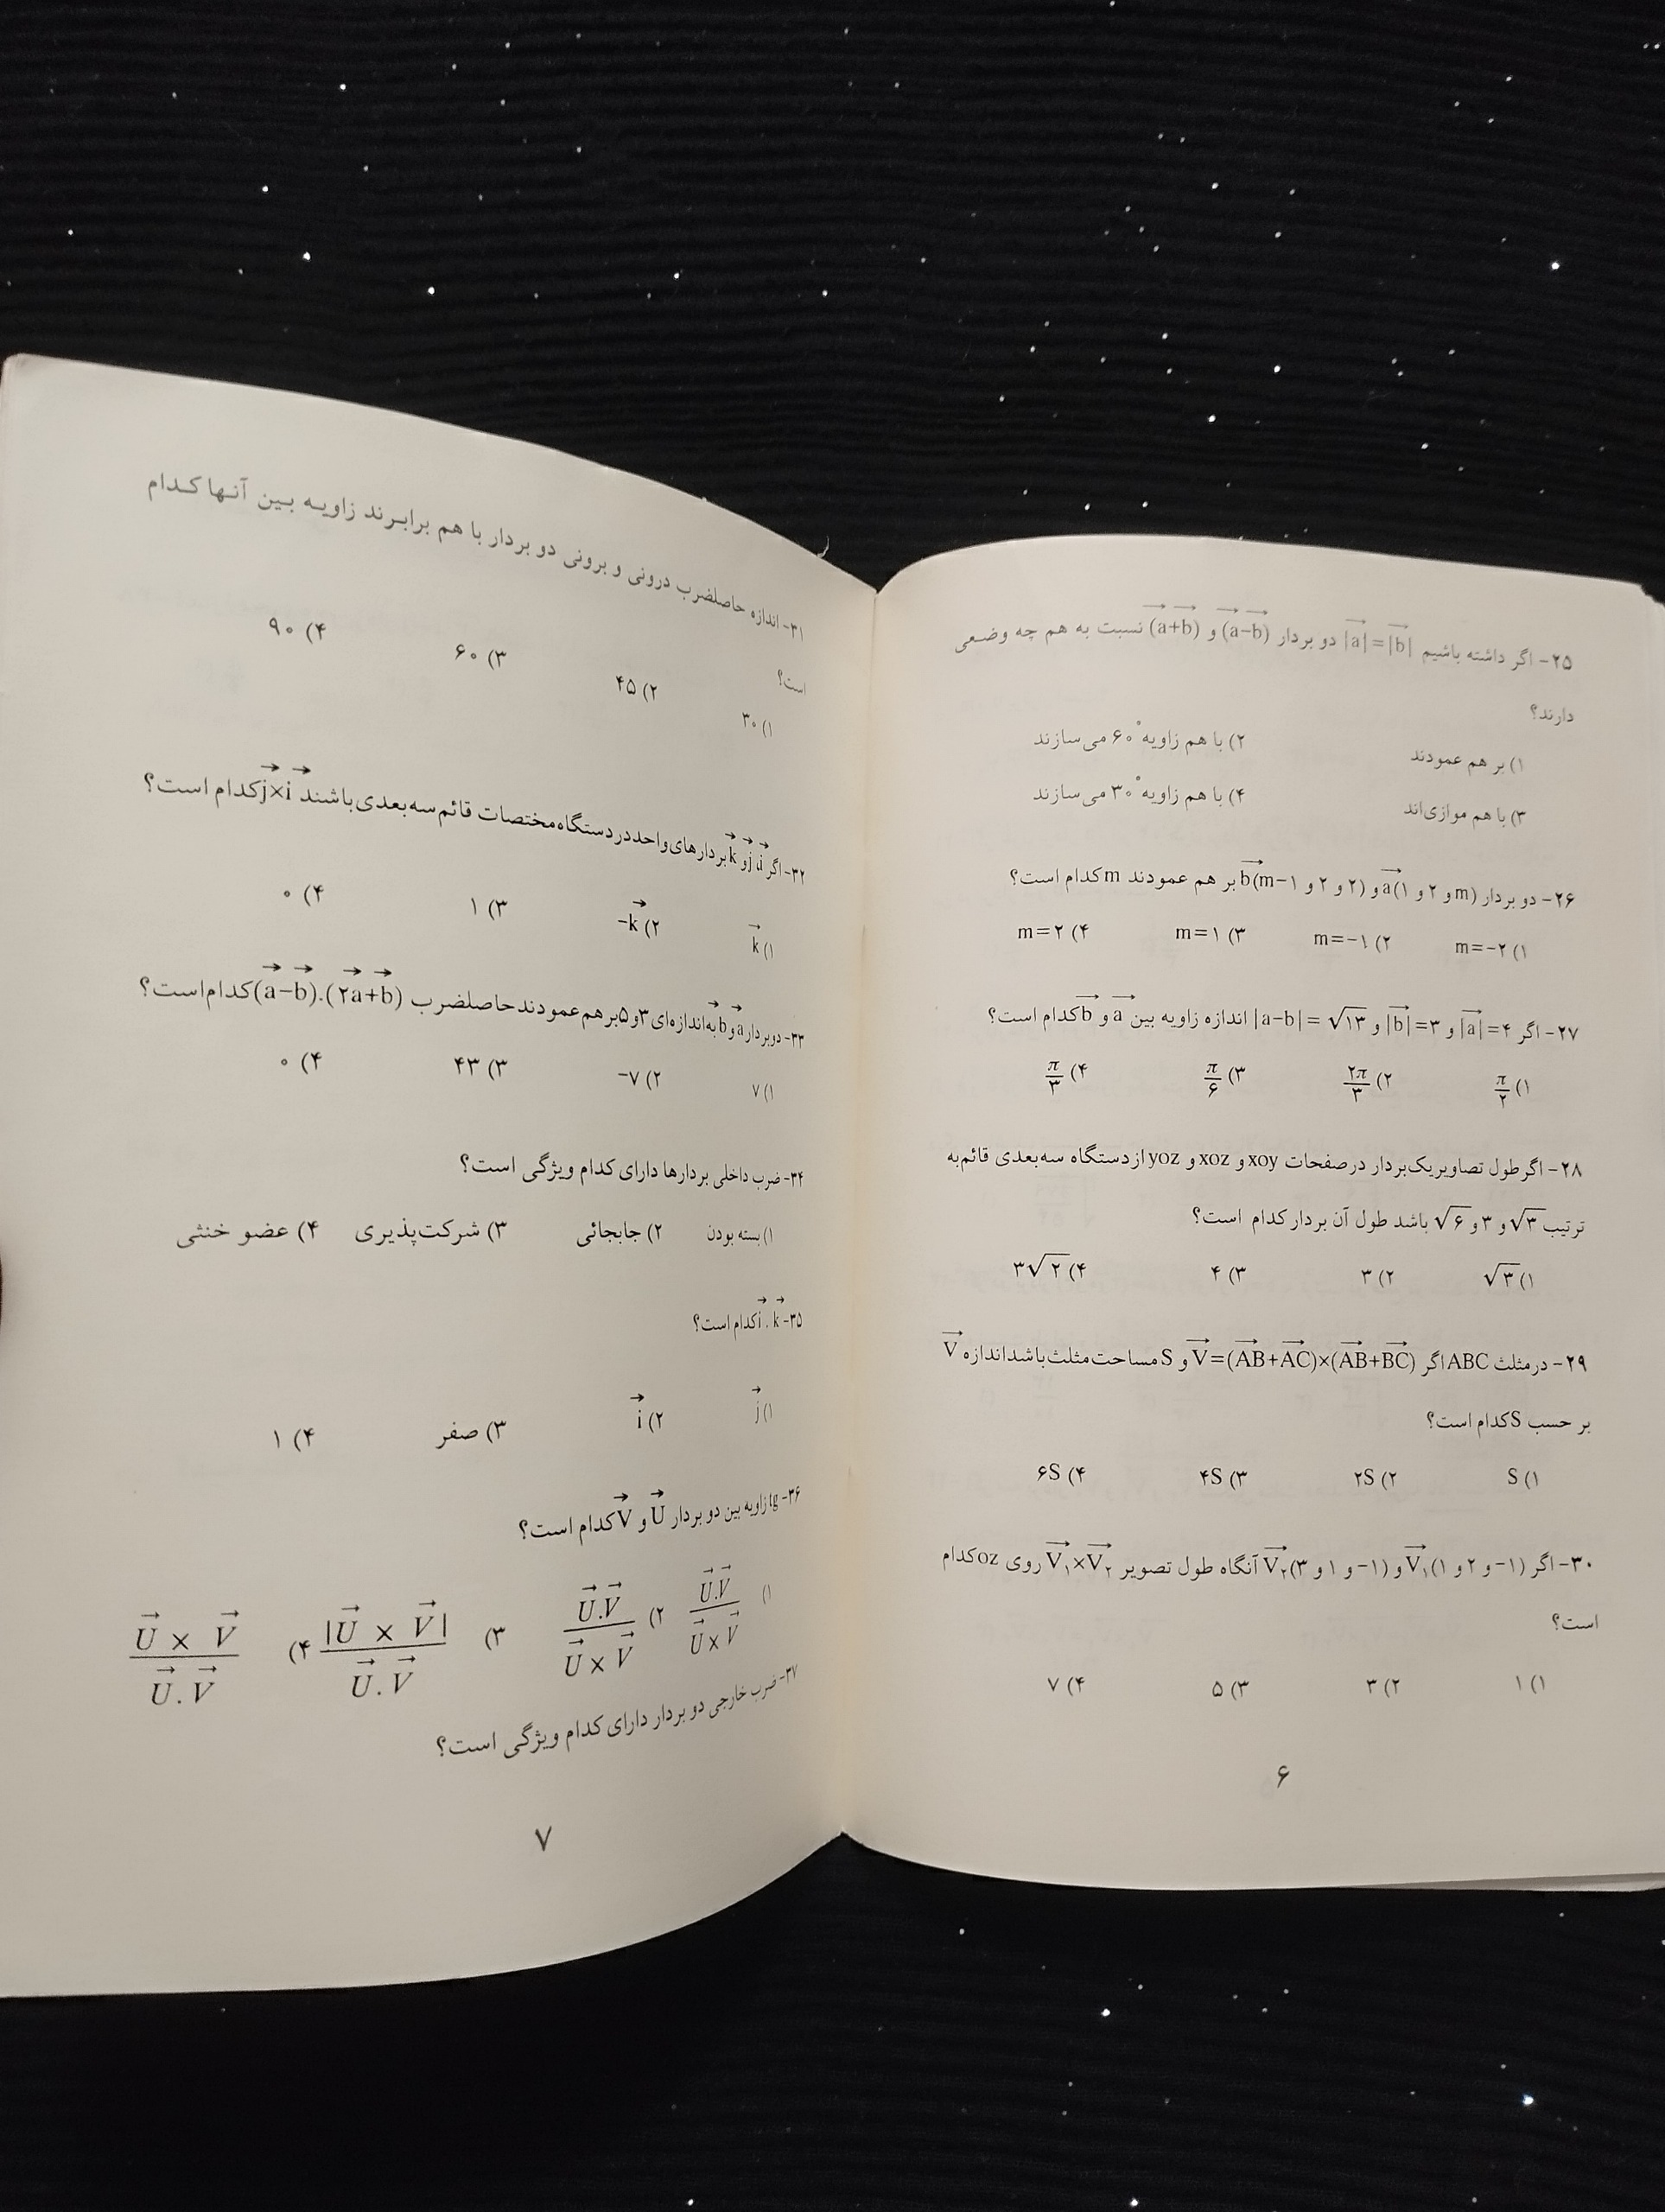 ۲۵- اگر داشته باشیم |a⃗|=|b⃗| دو بردار (a⃗-b⃗) و (a⃗+b⃗) نسبت به هم چه وضعی
دارند؟
۱) بر هم عمودند ۲) با هم زاویه ۶۰° می‌سازند
۳) با هم موازی‌اند ۴) با هم زاویه ۳۰° می‌سازند
۲۶- دو بردار a⃗(m و ۲ و ۱) و b⃗(m-۱ و ۲ و ۲) بر هم عمودند m کدام است؟
۱) m=-۲ ۲) m=-۱ ۳) m=۱ ۴) m=۲
۲۷- اگر |a⃗|=۴ و |b⃗|=۳ و |a-b| = √۱۳ اندازه زاویه بین a⃗ و b⃗ کدام است؟
۱) π/۲ ۲) ۲π/۳ ۳) π/۶ ۴) π/۳
۲۸- اگر طول تصاویر یک بردار در صفحات xoy و xoz و yoz از دستگاه سه بعدی قائم به
ترتیب √۳ و ۳ و √۶ باشد طول آن بردار کدام است؟
۱) √۳ ۲) ۳ ۳) ۴ ۴) ۳√۲
۲۹- در مثلث ABC اگر V⃗=(AB⃗+AC⃗)×(AB⃗+BC⃗) و S مساحت مثلث باشد اندازه V⃗
بر حسب S کدام است؟
۱) S ۲) ۲S ۳) ۴S ۴) ۶S
۳۰- اگر V⃗₁(۱ و ۲ و -۱) و V⃗₂(۳ و ۱ و -۱) آنگاه طول تصویر V⃗₁×V⃗₂ روی oz کدام
است؟
۱) ۱ ۲) ۳ ۳) ۵ ۴) ۷
۶
۳۱- اندازه حاصلضرب درونی و برونی دو بردار با هم برابرند زاویه بین آنها کدام
است؟
۱) ۳۰ ۲) ۴۵ ۳) ۶۰ ۴) ۹۰
۳۲- اگر i⃗، j⃗ و k⃗ بردارهای واحد در دستگاه مختصات قائم سه بعدی باشند j⃗×i⃗ کدام است؟
۱) k⃗ ۲) -k⃗ ۳) ۱ ۴) ۰
۳۳- دو بردار a⃗ و b⃗ به اندازه‌ای ۳ و ۵ بر هم عمودند حاصلضرب (a⃗-b⃗).(۲a⃗+b⃗) کدام است؟
۱) ۷ ۲) -۷ ۳) ۴۳ ۴) ۰
۳۴- ضرب داخلی بردارها دارای کدام ویژگی است؟
۱) بسته بودن ۲) جابجائی ۳) شرکت‌پذیری ۴) عضو خنثی
۳۵- i⃗ . k⃗ کدام است؟
۱) j⃗ ۲) i⃗ ۳) صفر ۴) ۱
۳۶- tg زاویه بین دو بردار U⃗ و V⃗ کدام است؟
۱) U⃗.V⃗/U⃗×V⃗ ۲) U⃗.V⃗/U⃗×V⃗ ۳) |U⃗×V⃗|/U⃗.V⃗ ۴) U⃗×V⃗/U⃗.V⃗
۳۷- ضرب خارجی دو بردار دارای کدام ویژگی است؟
۷